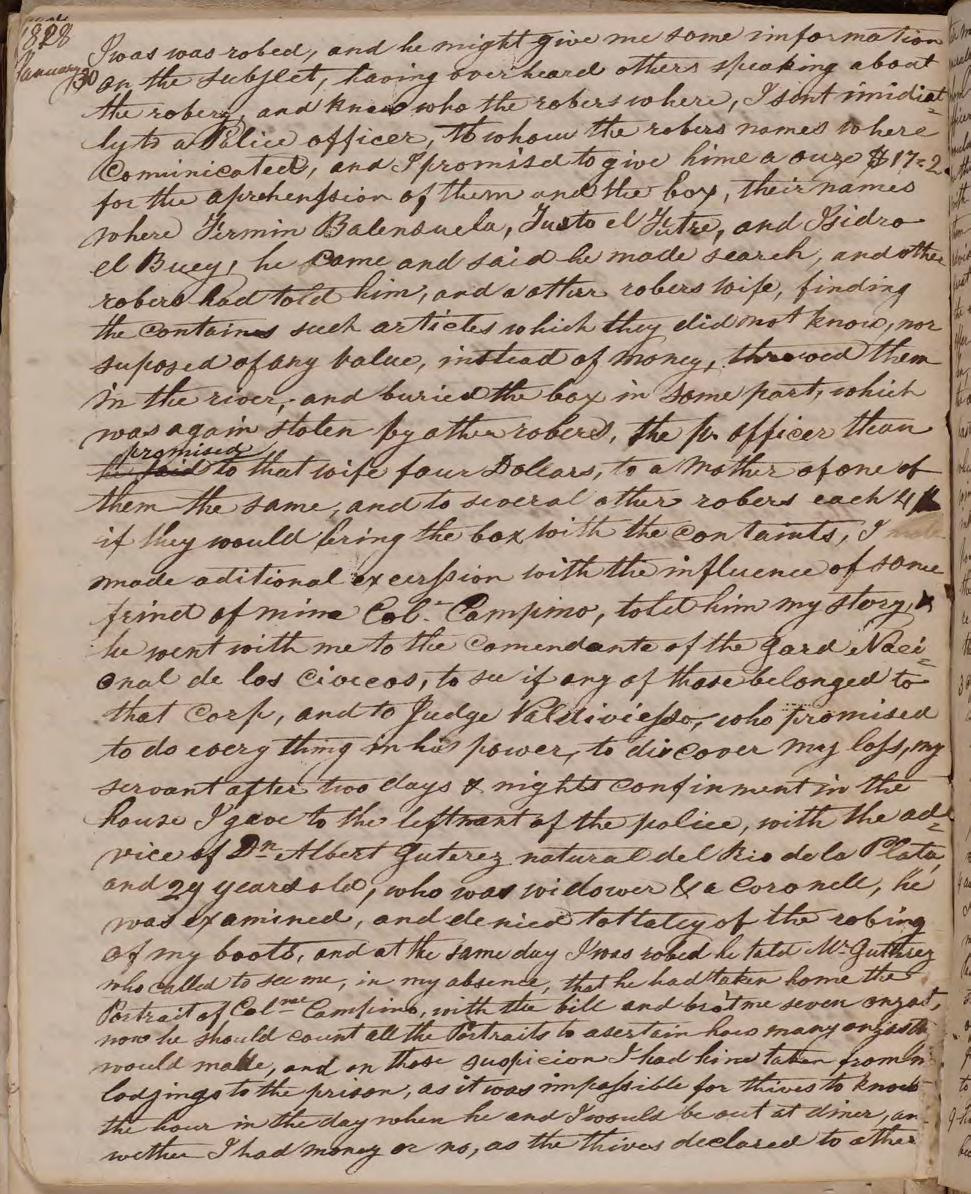 1828
January
30
I was was robed, and he might give me some information
on the subject, having overheard others speaking about
the robery, and know who the robers where, I sent imidiat=
ly to a Police officer, to whom the robers names where
Comunicated, and I promised to give hime a ouze $17=2
for the aprehenssion of them and the box, their names
where Firmin Balensuela, Justo el Futre, and Isidro
el Buey, he came and said he made search, and other
robers had told him, and a other robers wife, finding
the contains such articles which they did not know, nor
suposed of any value, instead of money, throwed them
in the river, and buried the box in some part, which
was again stolen by other robers, the p. officer than
promised
he said to that wife four Dollars, to a Mother of one of
them the same, and to several other robers each 4
if they would bring the box with the containts, I
made aditional excerssion with the influence of some
frind of mine Col. Campino, told him my story,
he went with me to the Comendante of the Gard Naci=
onal de los Civicos, to see if any of those belonged to
that Corp, and to Judge Valdiviesso, who promised
to do every thing in his power, to discover my loss, my
servant after two days & nights confinment in the
house I gave to the leftnant of the police, with the ad=
vice of Dn Albert Guterez natural del Rio de la Plata,
and 29 years old, who was widower & a Coronell, he
was examined, and denied tottaley of the robing
of my boots, and at the same day I was robed he told Mr. Guttriez
who called to see me, in my absence, that he had taken home the
Portrait of Colnel Campino, with the bill and brot me seven onzas,
now he should count all the Portraits to asertain how many onzas
would made, and on those suspicion I had hime taken from
lodjings to the prison, as it was impossible for thives to know
the hour in the day when he and I would be out at diner, an
wether I had money or no, as the thives declared to other